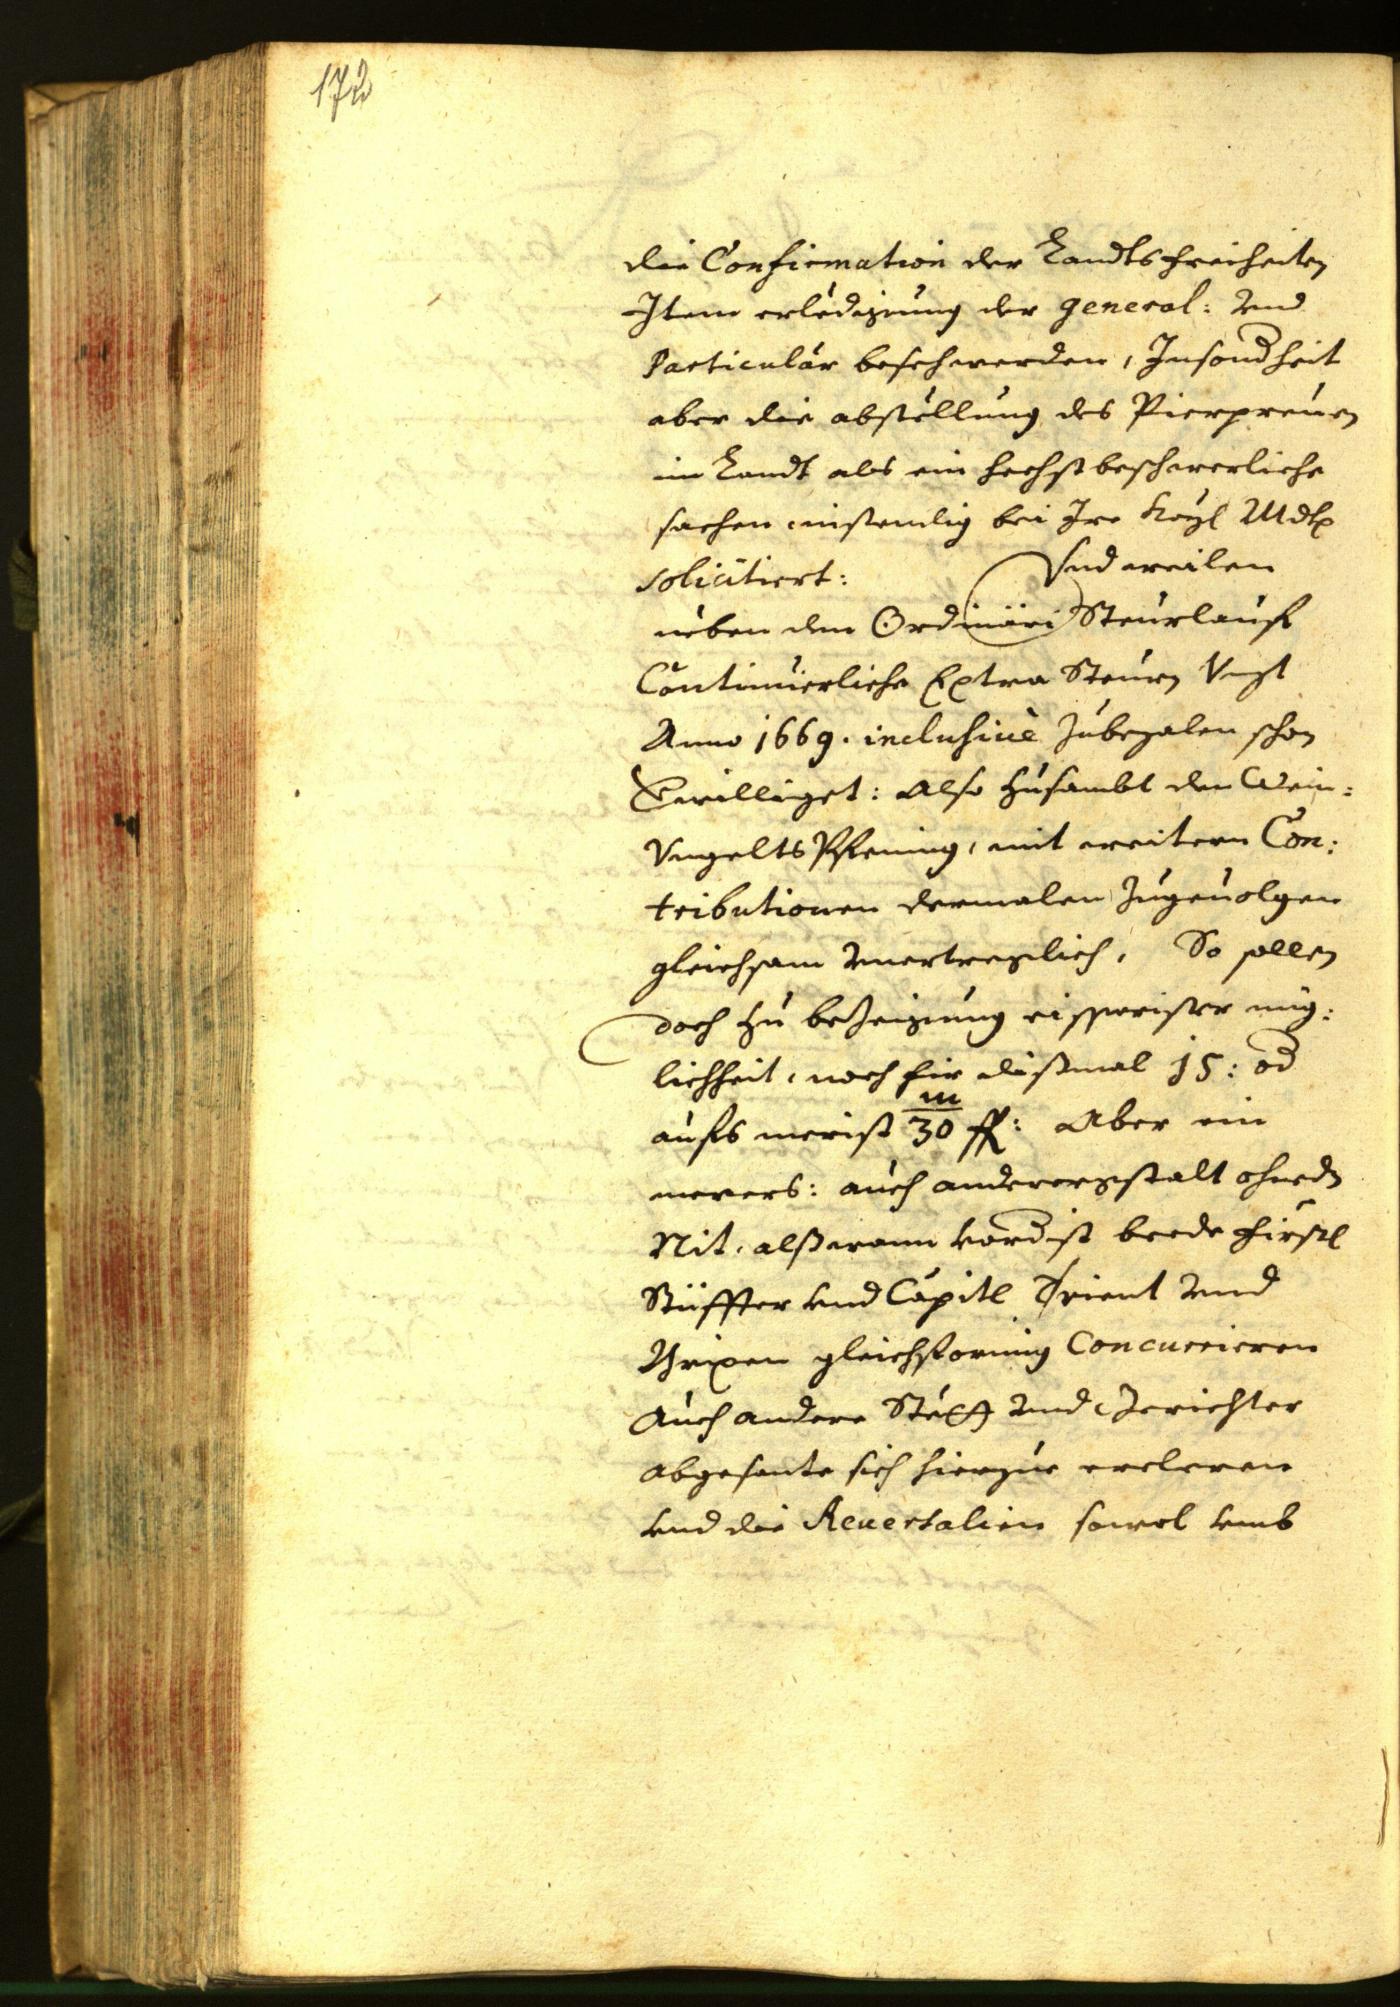 172
die Confirmation der Landtsfreiheiten
Item erledigung der general: und
Particular beschwerden, Insond heit
aber die abstellung des Pierpreuen
im Landt als ein hechst beschwerliche
sachen instendig bei Ire Kayl Mdt
solicitiert:
Und weilen
neben dem Ordinäri Steurlauf
Continuierliche Extra Steurn
Anno 1669. inclusiuè zubezalen schon
bewilliget: Also zusambt den Wein:
Vngelts Pfening, mit weitern Con:
tributionen dermalen zugeuolgen
gleichsam vnertreglich, So sollen
doch zu bezeigung eisserister mög:
lichheit, noch für dißmal 15: od
aufs merist 30 m ff: Aber ein
merers: auch anderergestalt
Nit, alß wann vordist beede fürstl
Stüffter vnd Capitl Trient vnd
Brixen gleichformig Concurrieren
Auch andere Stätt vnd Gerichter
abgesante sich hierzue ercleren
vnd die Reuersalien sowol vmb